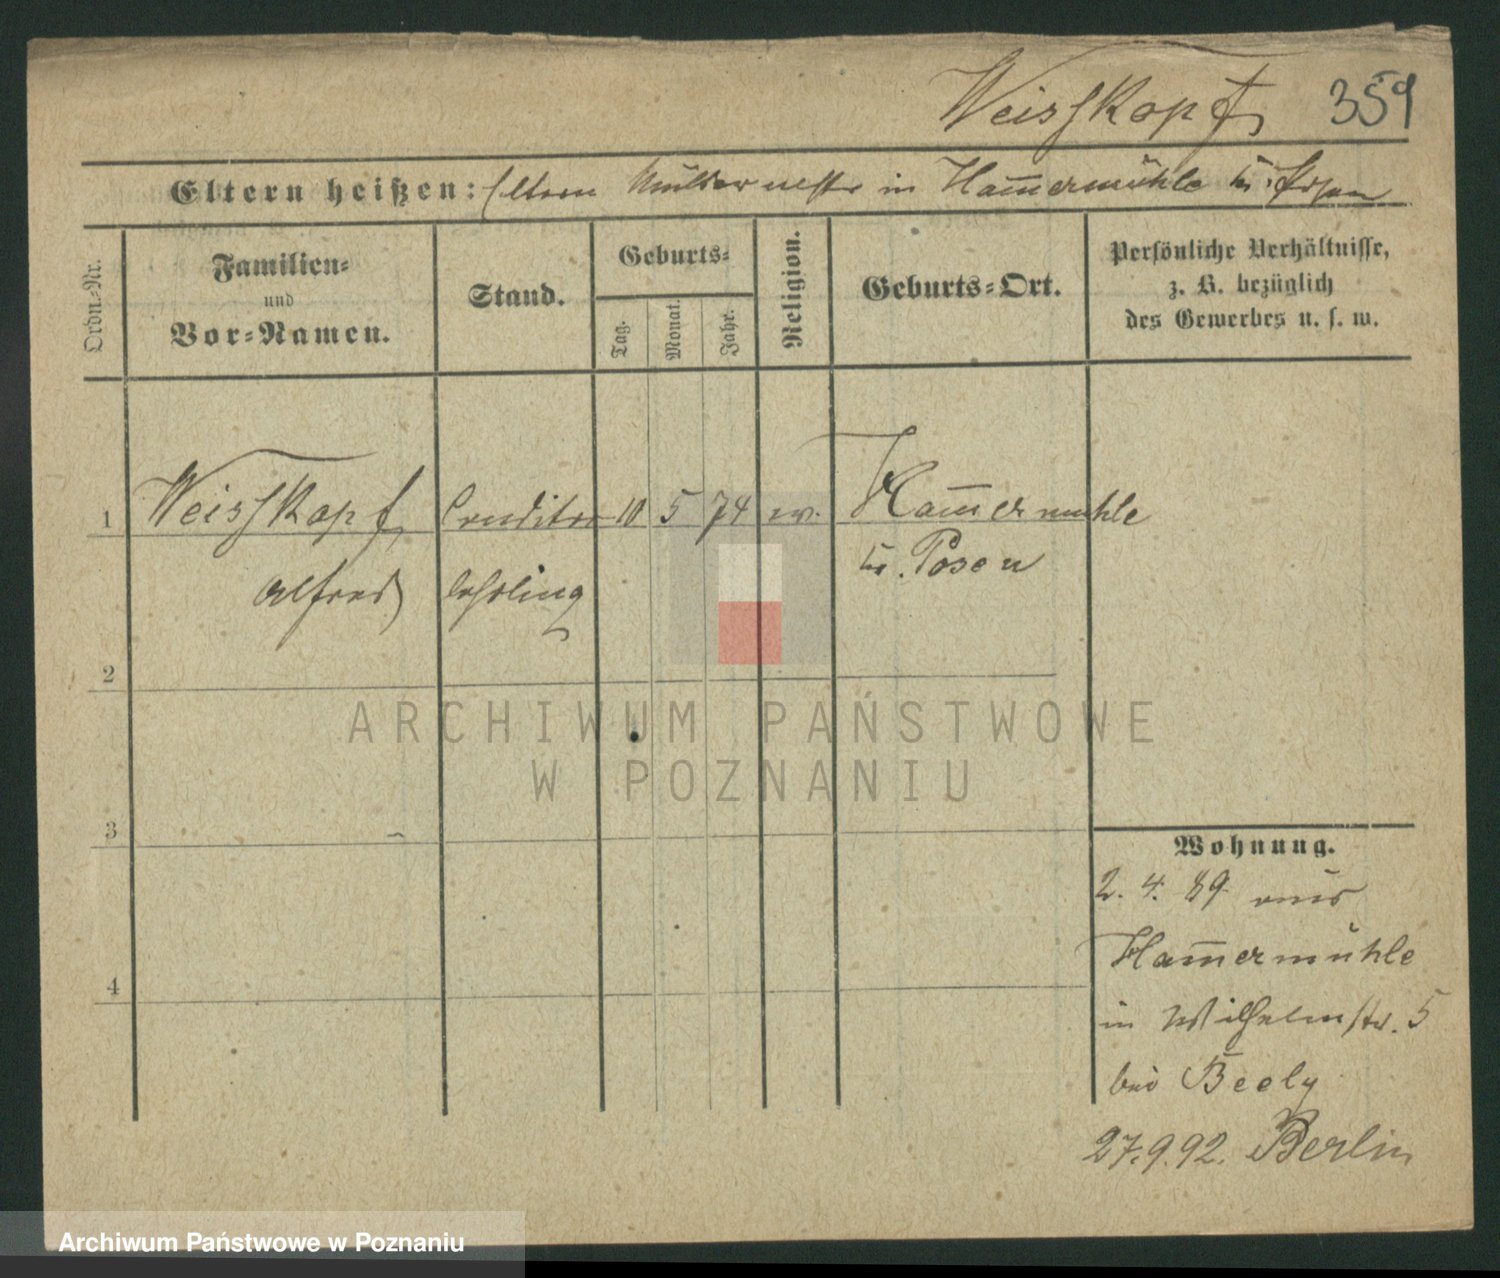 Weisskopf 359
Eltern heißen: Eltern in Ham̅ermühle Kr. Posen
Ordn.-Nr.
Familien-
und
Vor-Namen.
Stand.
Geburts-
Tag.
Monat.
Jahr.
Religion.
Geburts-Ort.
Persönliche Verhältnisse,
z. B. bezüglich
des Gewerbes u. s. w.
1 Weisskopf Conditor 10 5 74 ev. Ham̅ermühle
Alfred lehrling Kr. Posen
2
3
4
Wohnung.
2. 4. 89 aus
Ham̅ermühle
in Wilhelmstr. 5
bei Beely
27.9.92. Berlin
ARCHIWUM PAŃSTWOWE
W POZNANIU
Archiwum Państwowe w Poznaniu